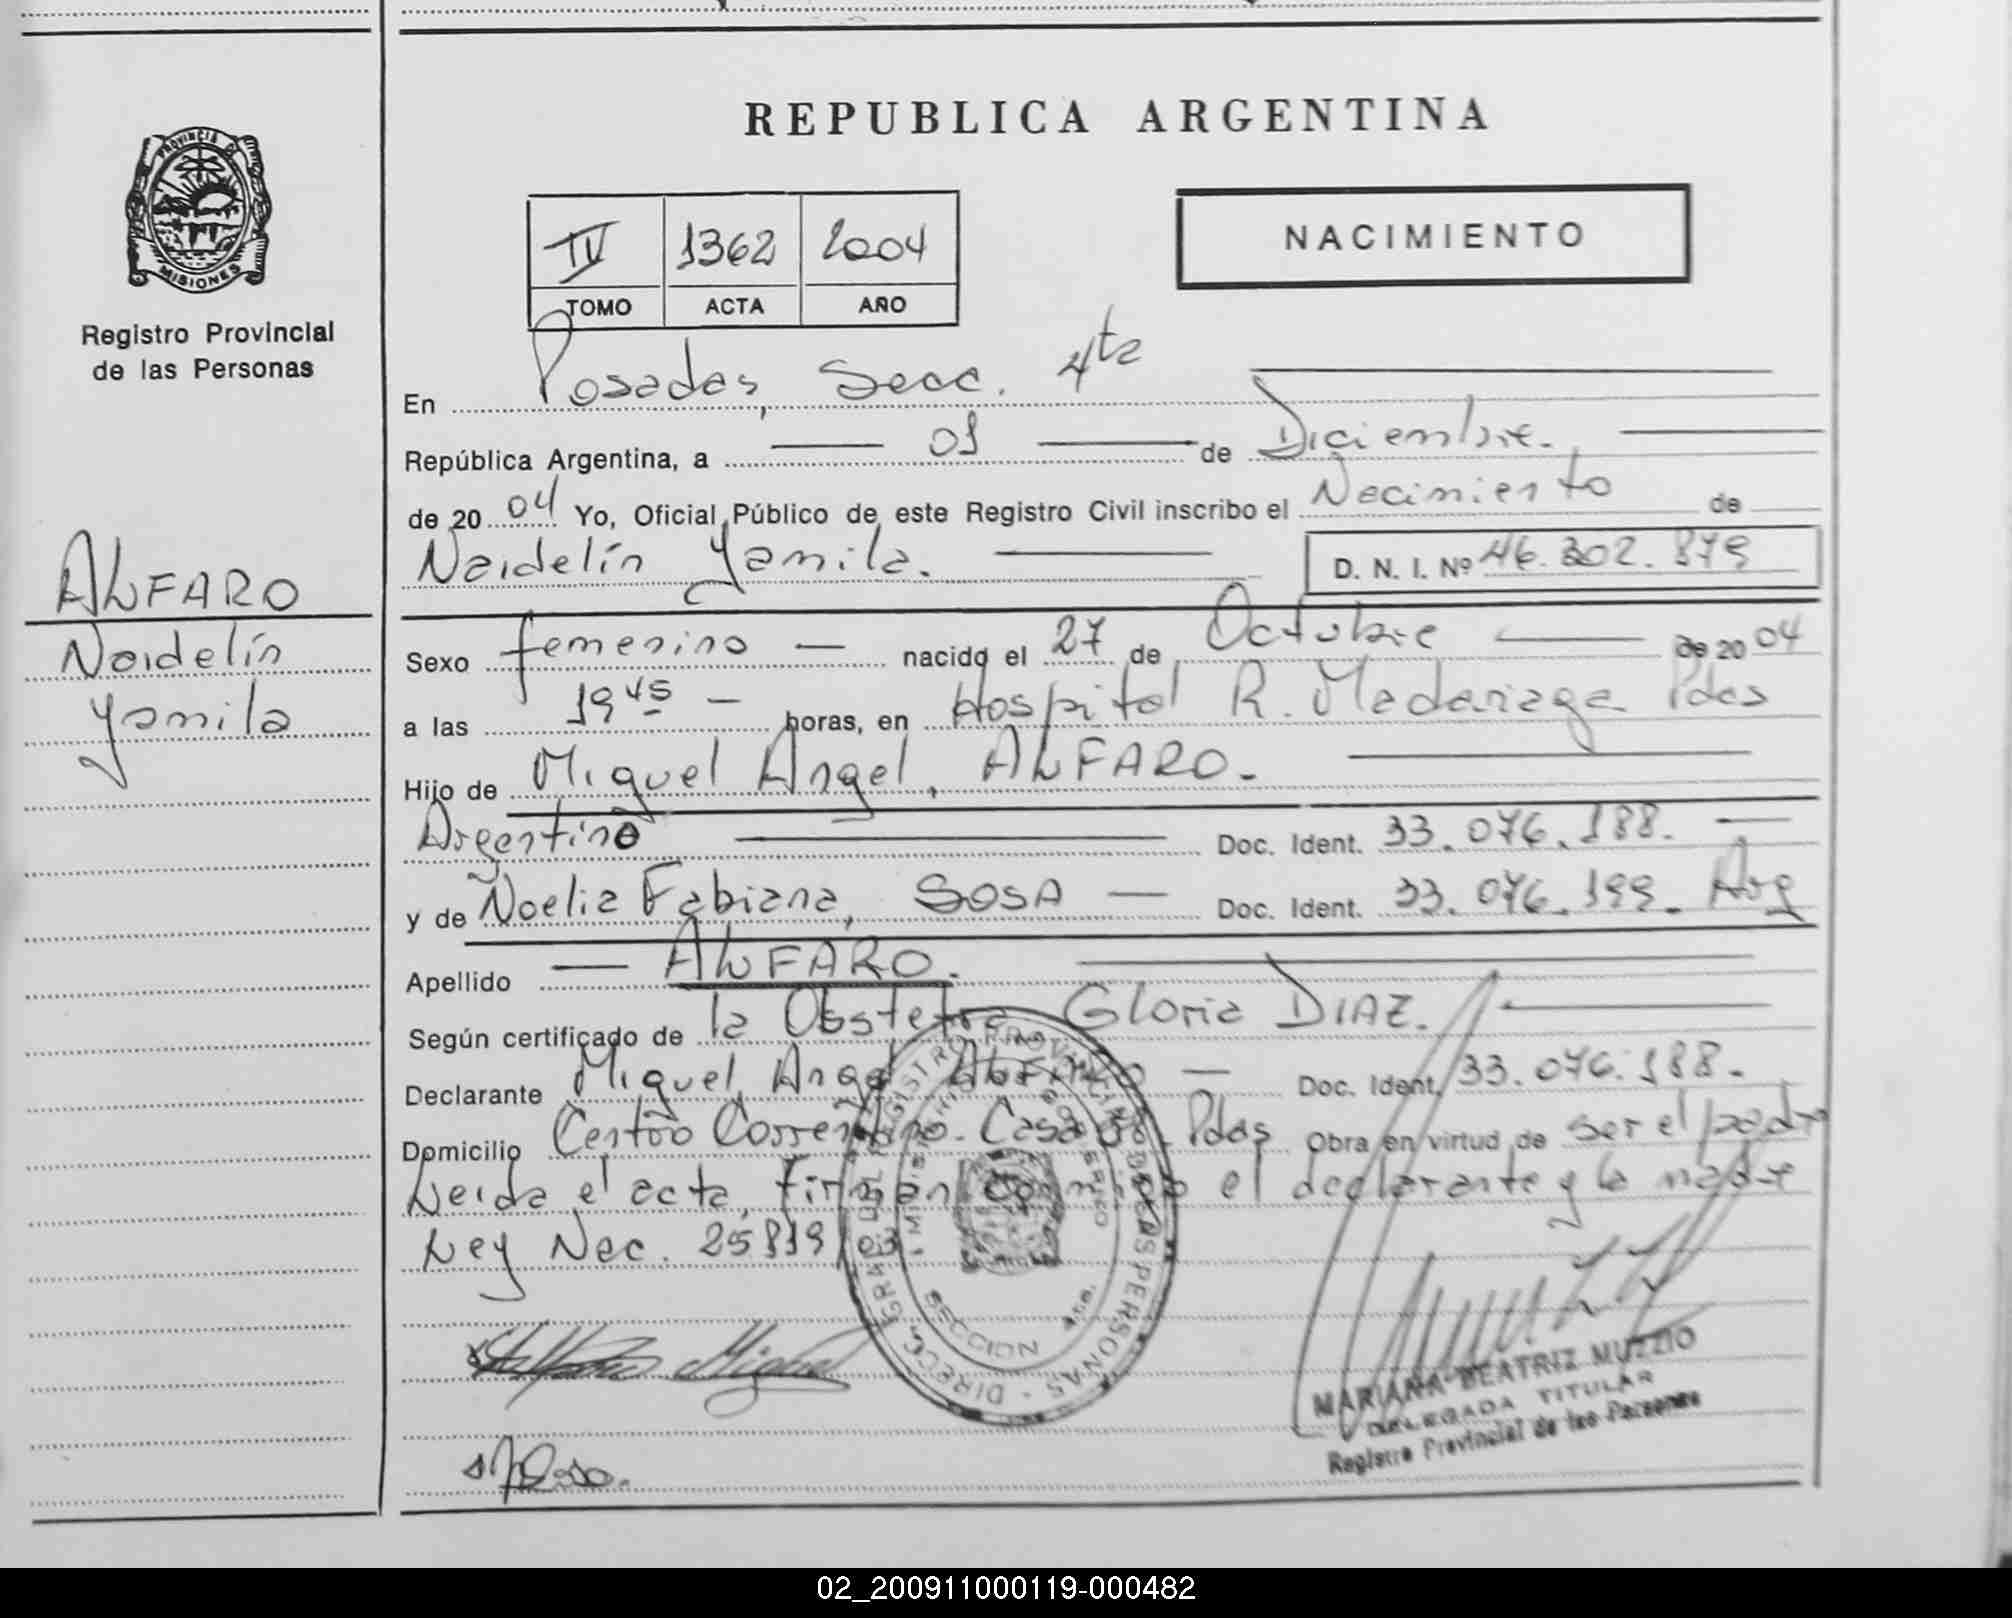 REPUBLICA ARGENTINA
PROVINCIA DE
MISIONES
Registro Provincial
de las Personas
IV 1362 2004
TOMO ACTA AÑO
NACIMIENTO
En Posadas, Secc. 4ta
República Argentina, a 01 de Diciembre.
de 2004 Yo, Oficial Público de este Registro Civil inscribo el Nacimiento de
Naidelín Yamila. D. N. I. Nº 46.302.879
ALFARO
Naidelín
Yamila
Sexo femenino nacido el 27 de Octubre de 2004
a las 19 45 horas, en Hospital R. Madariaga Pdas
Hijo de Miguel Angel, ALFARO.
Argentino Doc. Ident. 33.076.188.
y de Noelia Fabiana, SOSA Doc. Ident. 33.076.199. Arg
Apellido ALFARO.
Según certificado de la Obstetra Gloria DIAZ.
Declarante Miguel Angel ALFARO Doc. Ident. 33.076.188.
Domicilio Centro Correntino. Casa Pdas Obra en virtud de ser el padre
Leida el acta, firman conmigo el declarante y la madre
Ley Nac. 25819/03
SECCION
Alfaro Miguel
MARIANA BEATRIZ MUZZIO
DELEGADA TITULAR
Registro Provincial de las Personas
02_200911000119-000482